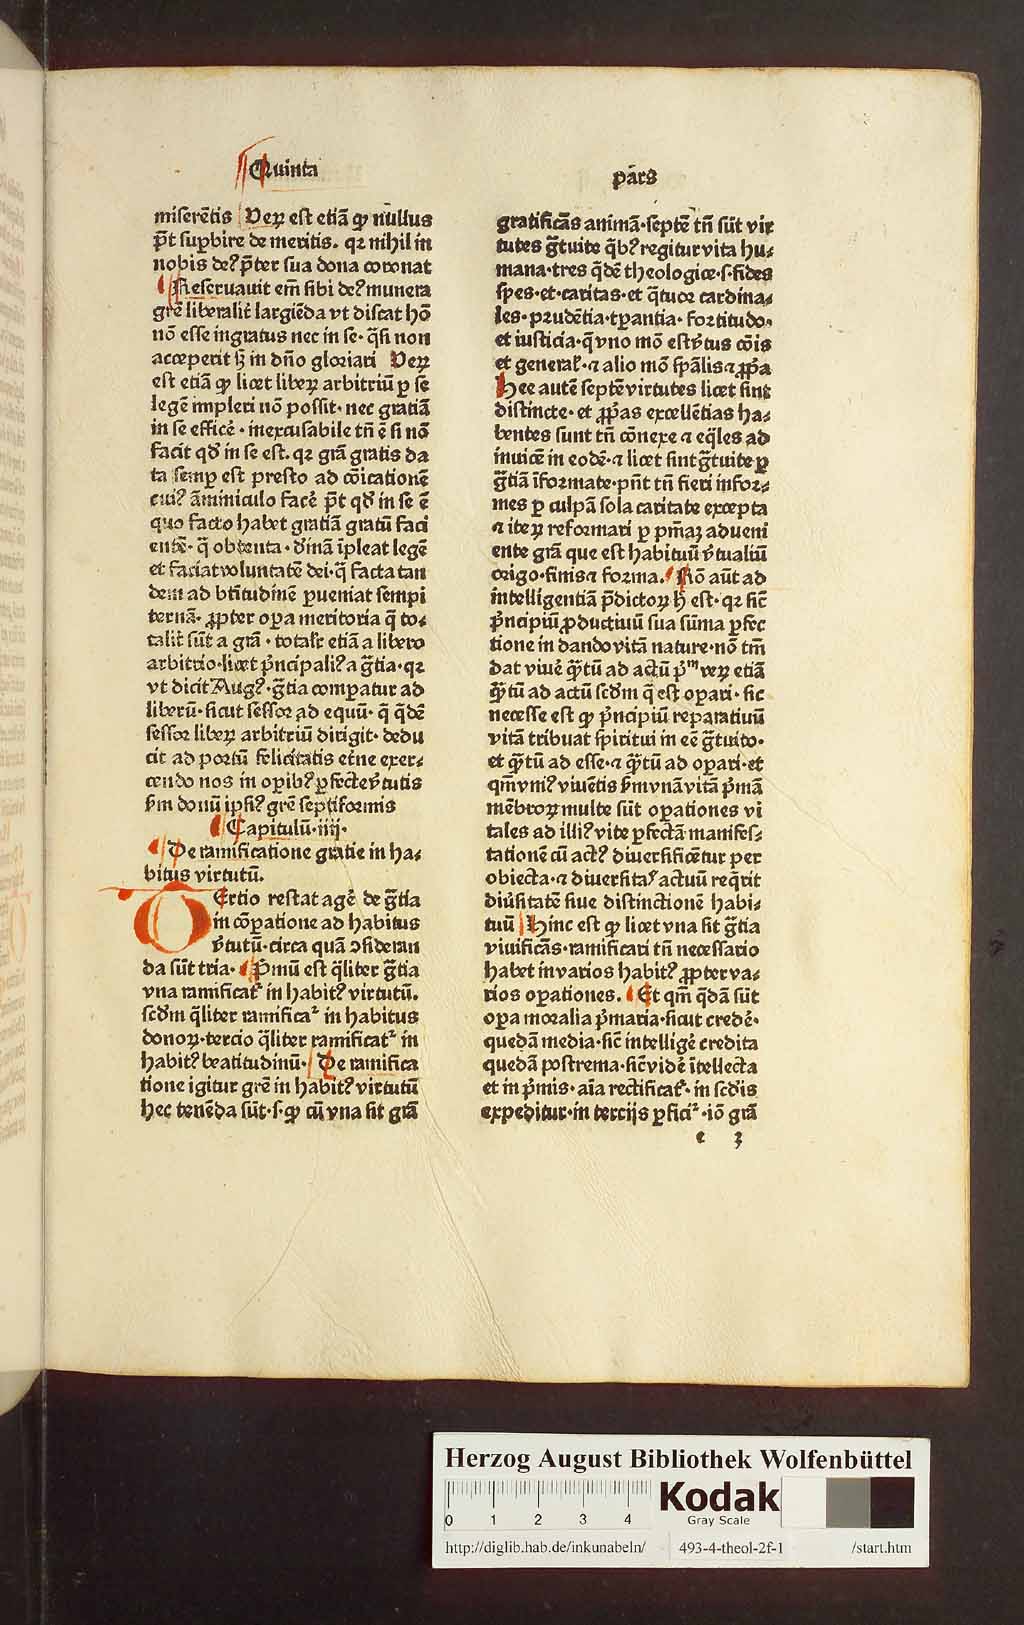 Quinta
pars
miserētis Veꝝ est etiā ꝙ nullus
pt̄ suꝑbire de meritis. qꝛ nihil in
nobis deꝰ p̄ter sua dona coronat
Reseruauit em̄ sibi deꝰ munera
gr̄e liberalit̄ largiēda vt discat hō
nō esse ingratus nec in se· q̄si non
acceperit sꝫ in dn̄o gloriari Veꝝ
est etiā ꝙ licet libeꝝ arbitriū ꝑ se
legē impleri nō possit· nec gratiā
in se efficē· inexcusabile tn̄ ē si nō
facit qd̛ in se est. qꝛ grā gratis da
ta semꝑ est presto ad cōicationē
cuiꝰ āminiculo facē pt̄ qd̛ in se ē
quo facto habet gratiā gratū faci
entē· q̄ obtenta· d̛mā īpleat legē
et faciat voluntatē dei· q̄ facta tan
dem ad btitudinē ꝑueniat sempi
ternā· ꝓpter oꝑa meritoria q̄ to⸗
talit̄ sūt a grā· totalr̄ etiā a libero
arbitrio· licet p̄ncipaliꝰ a gr̄tia· qꝛ
vt dicit Augꝰ· gr̄tia comꝑatur ad
liberū· sicut sessor ad equū· q̄ q̄dē
sessor libeꝝ arbitriū dirigit· dedu
cit ad portū felicitatis etne exer⸗
cendo nos in oꝑibꝰ ꝑfecte v̄tutis
ẜm donū ipsiꝰ gr̄e septiformis
Capitulū· iiij·
De ramificatione gratie in ha⸗
bitus virtutū.
Tertio restat agē de gr̄tia
in cōꝑatione ad habitus
v̄tutū· circa quā ꝯsideran
da sūt tria· Pmū est q̄liter gr̄tia
vna ramificat᷑ in habitꝰ virtutū.
scd̛m q̄liter ramifica᷑ in habitus
donoꝝ· tercio q̄liter ramificat᷑ in
habitꝰ beatitudinū· De ramifica
tione igitur gr̄e in habitꝰ virtutū
hec tenēda sūt· s· ꝙ cū vna sit grā
gratificās animā· septē tn̄ sūt vir
tutes gr̄tuite q̄bꝰ regitur vita hu⸗
mana· tres q̄dē theologice· s· fides
spes· et· caritas· et q̄tuor cardina⸗
les· prudētia· tꝑantia· fortitudo·
et iusticia· q̄ vno mō est v̄tus cōis
et general᷑· ⁊ alio mō sp̄alis ⁊ ꝓp̄a
Hee autē septē virtutes licet sint
distincte· et ꝓp̄as excellētias ha⸗
bentes sunt tn̄ cōnexe ⁊ eq̄les ad
inuicē in eodē· ⁊ licet sint gr̄tuite ꝑ
gr̄tiā īformate· pn̄t tn̄ fieri infor⸗
mes ꝑ culpā sola caritate excepta
⁊ iteꝝ reformari ꝑ pm̄aꝫ adueni
ente grā que est habituū v̄tualiū
origo· finis ⁊ forma. Rō aūt ad
intelligentiā p̄dictoꝝ h̄ est· qꝛ sic̄
p̄ncipiū ꝓductiuū sua sūma ꝑfec
tione in dando vitā nature· nō tm̄
dat viuē q̄tū ad actū p̄ᵐ veꝝ etiā
q̄tū ad actū scd̛m q̄ est oꝑari· sic
necesse est ꝙ p̄ncipiū reꝑatiuū
vitā tribuat spiritui in eē gr̄tuito·
et q̄tū ad esse· ⁊ q̄tū ad oꝑari· et
qm̄ vniꝰ viuētis ẜm vnā vitā p̄mā
mēbroꝝ multe sūt oꝑationes vi
tales ad illiꝰ vite ꝑfectā manifes⸗
tationē cū actꝰ diuersificētur per
obiecta· ⁊ diuersitaꝰ actuū req̄rit
diūsitatē siue distinctionē habi⸗
tuū Hinc est ꝙ licet vna sit gr̄tia
viuificās· ramificari tn̄ necessario
habet in varios habitꝰ ꝓpter va⸗
rios oꝑationes. Et qm̄ q̄dā sūt
oꝑa moralia p̄maria· sicut credē·
quedā media· sic̄ intelligē credita
quedā postrema· sic̄ vidē ītellecta
et in p̄mis· aīa rectificat᷑· in scd̛is
expeditur· in tercijs ꝑfici᷑· iō grā
e 3
Herzog August Bibliothek Wolfenbüttel
0 1 2 3 4
Kodak
Gray Scale
http://diglib.hab.de/inkunabeln/ 493-4-theol-2f-1 /start.htm